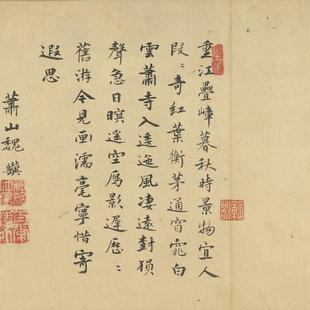 重江疊嶂暮秋時景物宜人
段〻奇紅葉衡茅通窅窕白
雲蕭寺入逶迤風凄遠封猿
聲急日暝遥空鴈影遲歷〻
舊游今見画濡毫寧惜寄
遐思
蕭山魏驥